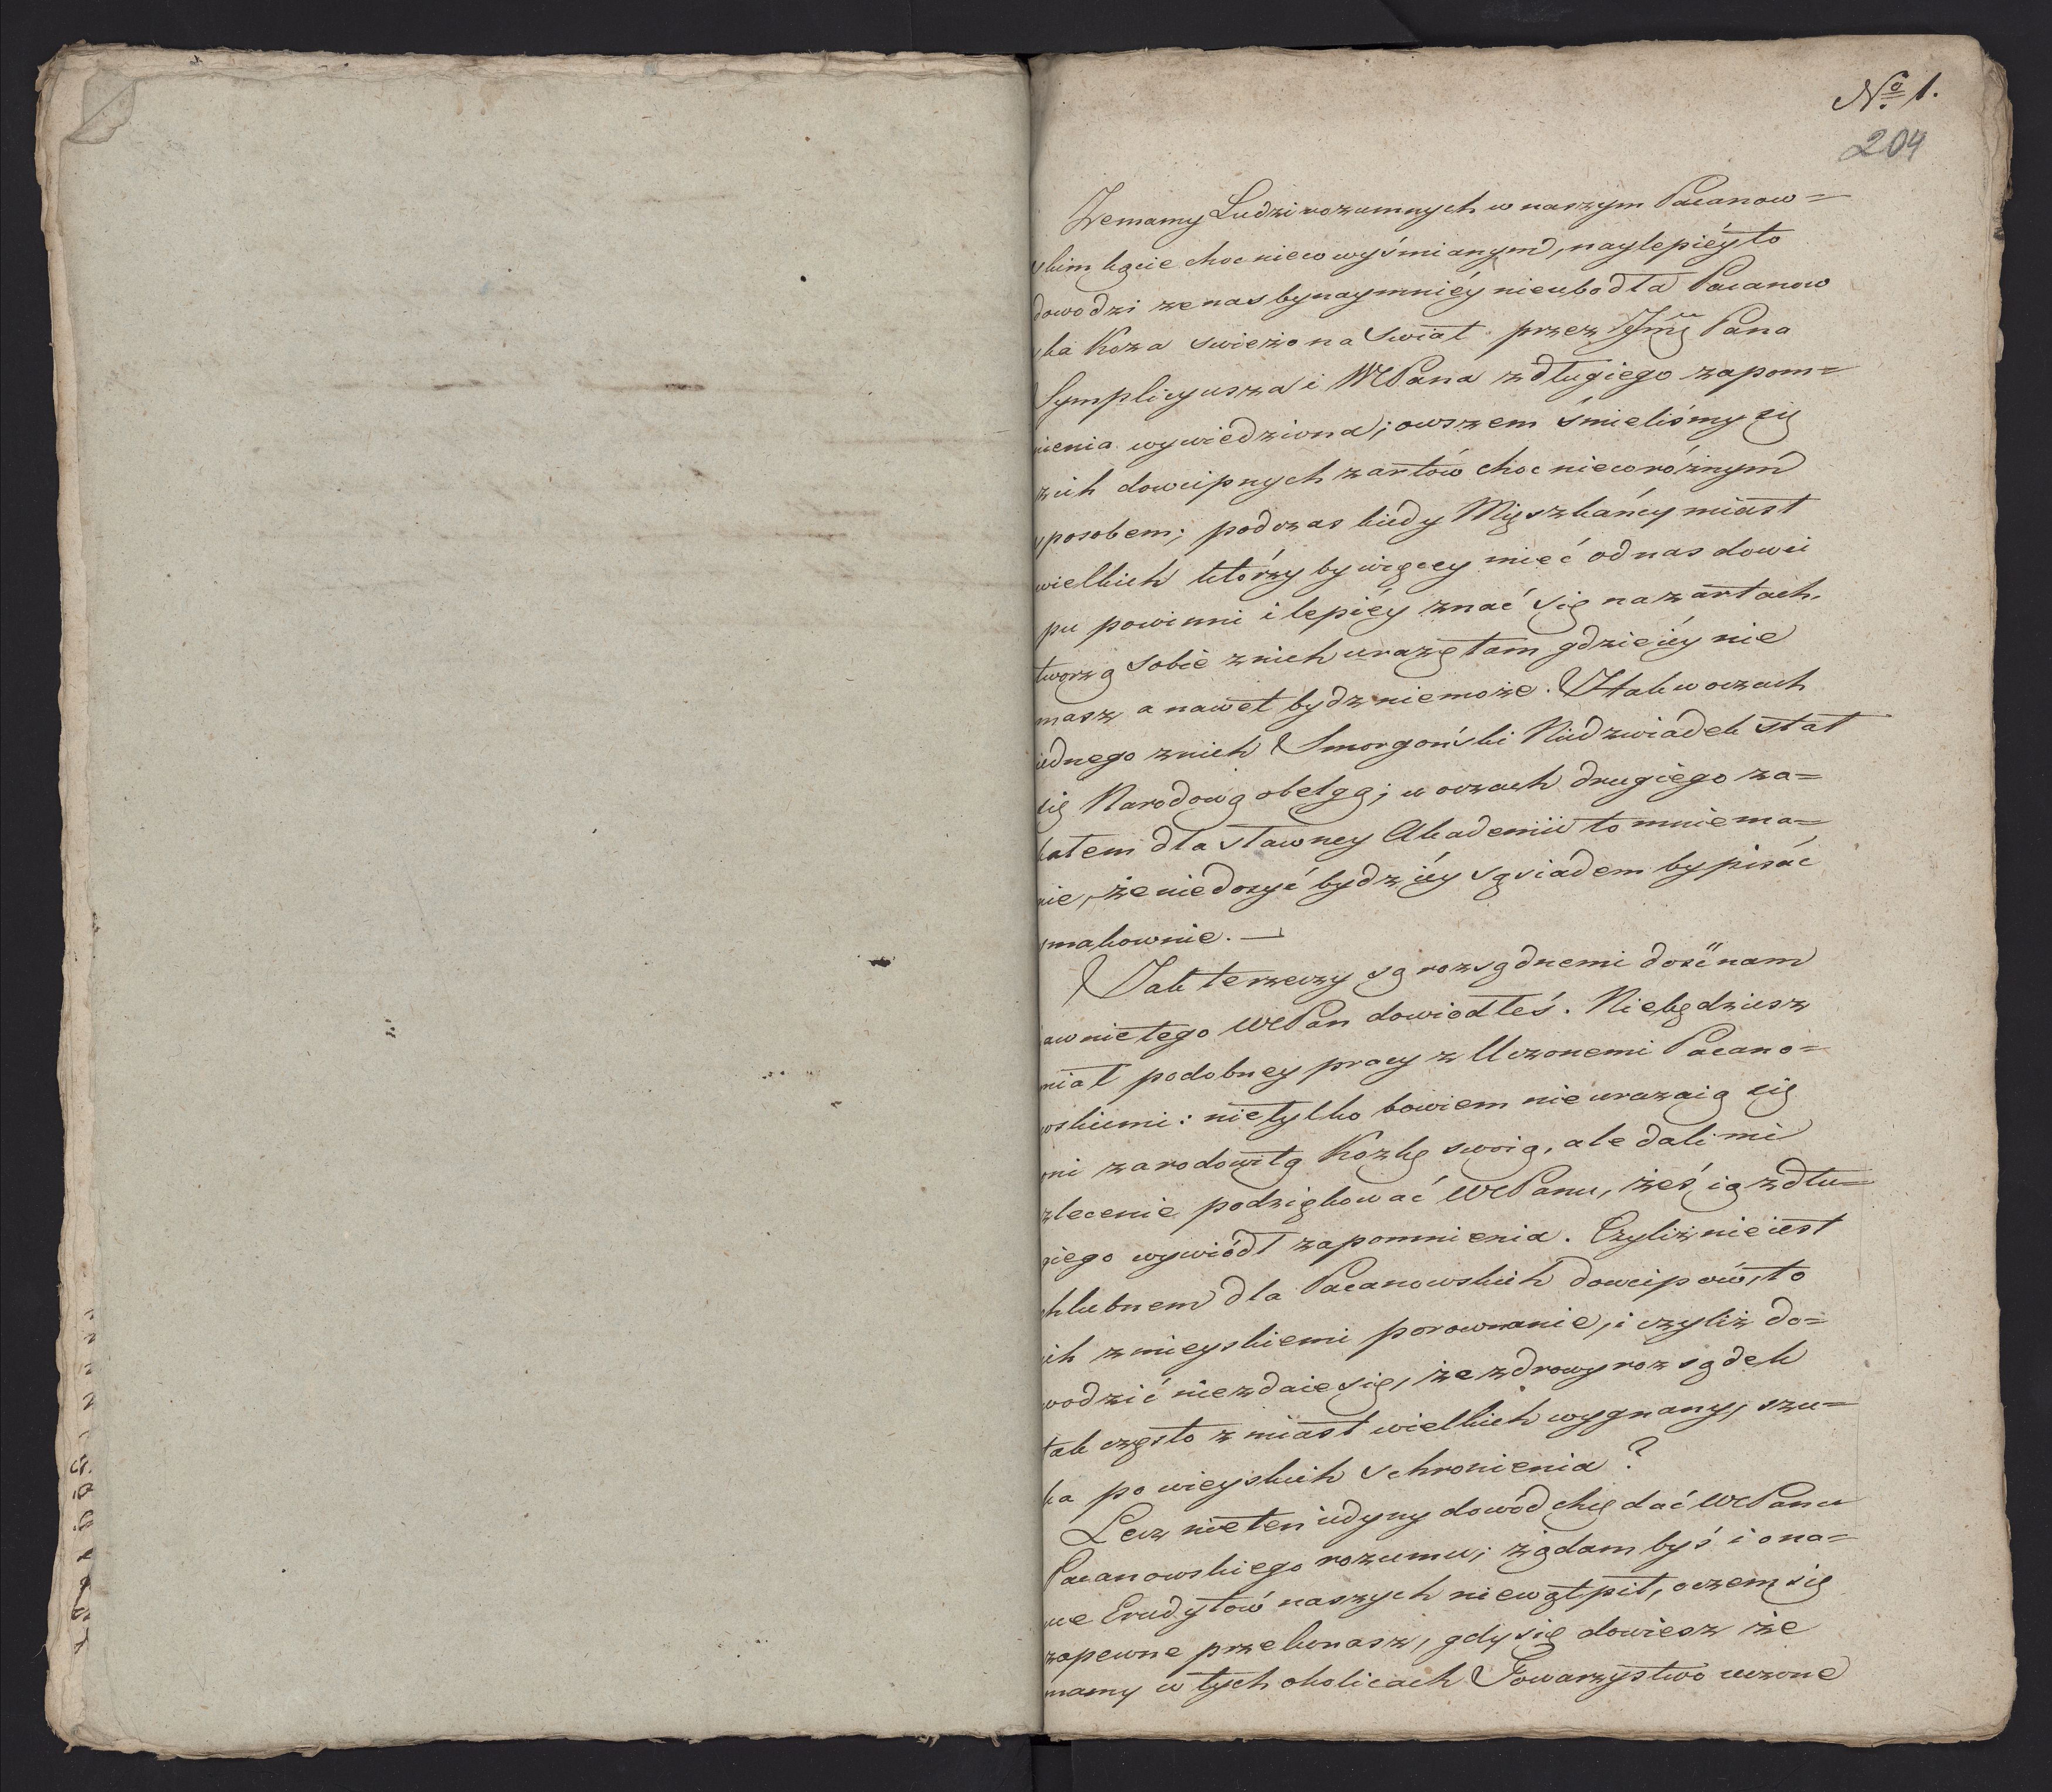 No 1.
204
Ze mamy Ludzi rozumnych w naszym Pacanow=
skim kącie choc nieco wyśmianym, naylepiéy to
dowodzi ze nas bynaymniéy nieubodła Pacanow
ska Koza swiezo na Swiat przez Jmę Pana
Symplicyusza i WPana z długiego zapom=
nienia wywiedziona; owszem śmieliśmy się
z ich dowcipnych zartów choc nieco róznym
sposobem; podczas kiedy Mięszkańcy miast
wielkich którzy by więcey mieć od nas dowci
pu powinni i lepiéy znać się na zartach,
tworzą sobie z nich urazę tam gdzie iéy nie
masz a nawet bydz nie może. I tak w oczach
iednego z nich Smorgoński Niedzwiadek stał
się Narodową obelgą; w oczach drugiego za=
kałem dla sławney Akademii to mniema=
nie, że niedosyć bydz iéy sąsiadem by pisać
smakownie. —
Jak te rzeczy są rozsądnemi dość nam
iawnie tego WPan dowiedłeś. Niebędziesz
miał podobney pracy z Uczonemi Pacano=
wskiemi: nietylko bowiem nie urazaią się
oni za rodowitą Kozkę swoią, ale dali mi
zlecenie podziękować WPanu, żeś ią z dłu=
giego wywiódł zapomnienia. Czyliż nie iest
chlubnem dla Pacanowskich dowcipów, to
ich z mieyskiemi porownanie, i czyliż do=
wodzić niezdaie się, ze zdrowy rozsądek
tak często z miast wielkich wygnany, szu=
ka po wieyskich schronienia?
Lecz nie ten iedyny dowód chcę dać WPanu
Pacanowskiego rozumu; ządam byś i o na=
uce Erudytów naszych niewątpił, o czem się
zapewne przekonasz, gdy się dowiesz że
mamy w tych okolicach Towarzystwo uczone